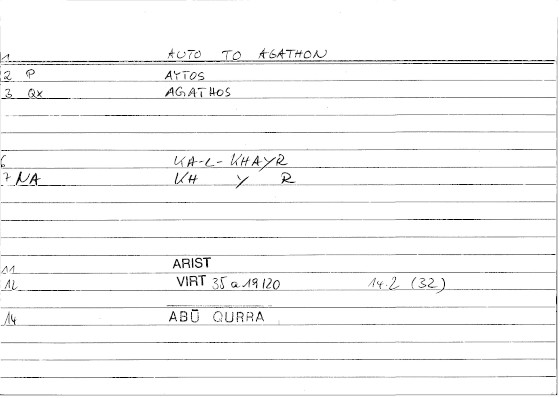 1 AUTO TO AGATHON
2 P AYTOS
3 Qx AGATHOS
6 KA-L-KHAYR
7 NA KH Y R
11 ARIST
12 VIRT 35 a 19/20 14.2 (32)
14 ABŪ QURRA